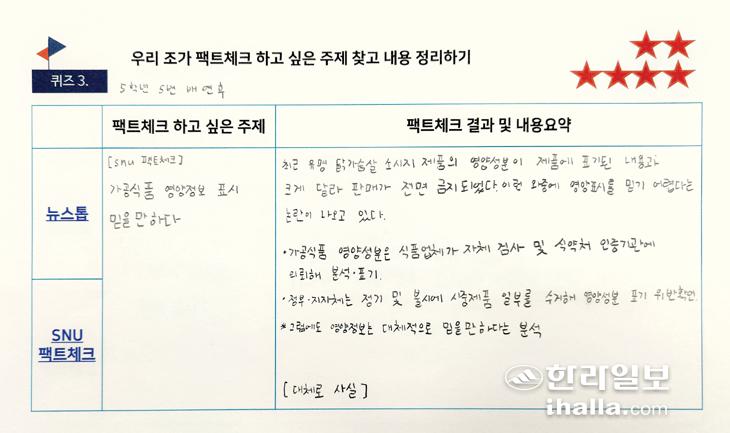 우리 조가 팩트체크 하고 싶은 주제 찾고 내용 정리하기
퀴즈 3.
5학년 5반 배연후
팩트체크 하고 싶은 주제
팩트체크 결과 및 내용요약
뉴스톱
SNU
팩트체크
[snu 팩트체크]
가공식품 영양정보 표시
믿을만하다
최근 유명 닭가슴살 소시지 제품의 영양성분이 제품에 표기된 내용과
크게 달라 판매가 전면 금지되었다. 이런 와중에 영양표시를 믿기 어렵다는
논란이 나오고 있다.
·가공식품 영양성분은 식품업체가 자체 검사 및 식약처 인증기관에
의뢰해 분석·표기.
·정부·지자체는 정기 및 불시에 시중제품 일부를 수거해 영양성분 표기 위반확인.
*그럼에도 영양정보는 대체적으로 믿을만하다는 분석
[대체로 사실]
한라일보
ihalla.com